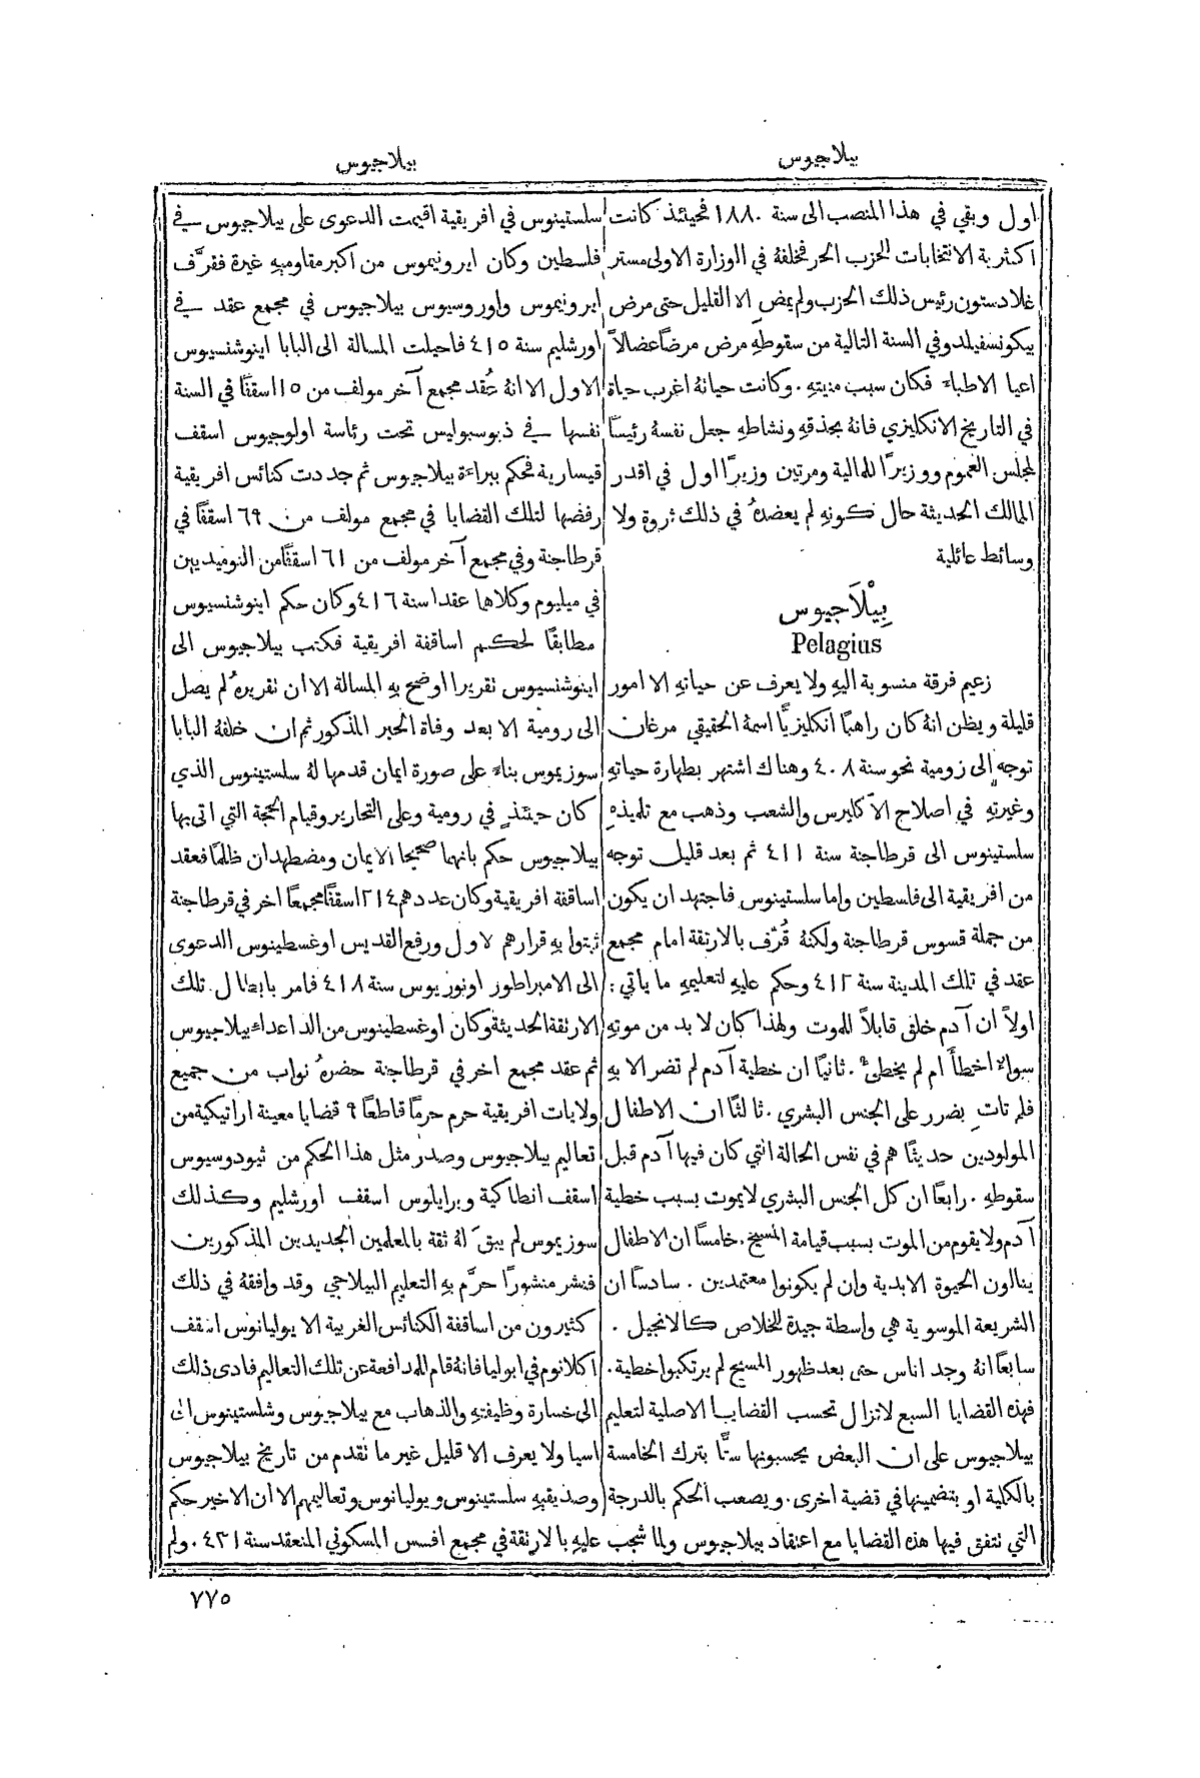 بيلاجيوس
بيلاجيوس
اول وبقي في هذا المنصب الى سنة ١٨٨٠ فحينئذ كانت
اكثرية الانتخابات للحزب الحر فخلفهُ في الوزارة الاولى مستر
غلادستون رئيس ذلك الحزب ولم يمضِ الا القليل حتى مرض
بيكونسفيلد وفي السنة التالية من سقوطهِ مرض مرضاً عضالاً
اعيا الاطباء فكان سبب منيتهِ. وكانت حياتهُ اغرب حياة
في التاريخ الانكليزي فانهُ بحذقهِ ونشاطهِ جعل نفسهُ رئيسًا
لمجلس العموم ووزيرًا للمالية ومرتين وزيرًا اول في اقدر
الممالك الحديثة حال كونهِ لم يعضدهُ في ذلك ثروة ولا
وسائط عائلية
بِيْلاَجيوس
Pelagius
زعيم فرقة منسوبة اليهِ ولا يعرف عن حياتهِ الا امور
قليلة ويظن انهُ كان راهبًا انكليزيًّا اسمهُ الحقيقي مرغان
توجه الى رومية نحو سنة ٤٠٨ وهناك اشتهر بطهارة حياتهِ
وغيرتهِ في اصلاح الاكليرس والشعب وذهب مع تلميذهِ
سلستينوس الى قرطاجنة سنة ٤١١ ثم بعد قليل توجه
من افريقية الى فلسطين واما سلستينوس فاجتهد ان يكون
من جملة قسوس قرطاجنة ولكنهُ قُرِف بالارتقة امام مجمع
عقد في تلك المدينة سنة ٤١٢ وحكم عليهِ لتعليمهِ ما ياتي:
اولاً ان آدم خلق قابلاً للموت ولهذا كان لا بد من موتهِ
سواء اخطأَ ام لم يخطئ. ثانيًا ان خطية آدم لم تضر الا بهِ
فلم تاتِ بضرر على الجنس البشري. ثالثًا ان الاطفال
المولودين حديثًا هم في نفس الحالة التي كان فيها آدم قبل
سقوطهِ. رابعًا ان كل الجنس البشري لا يموت بسبب خطية
آدم ولا يقوم من الموت بسبب قيامة المسيح. خامسًا ان الاطفال
ينالون الحيوة الابدية وان لم يكونوا معتمدين. سادسًا ان
الشريعة الموسوية هي واسطة جيدة للخلاص كالانجيل.
سابعًا انهُ وجد اناس حتى بعد ظهور المسيح لم يرتكبوا خطية.
فهذه القضايا السبع لا تزال تحسب القضايا الاصلية لتعليم
بيلاجيوس على ان البعض يحسبونها ستًّا بترك الخامسة
بالكلية او بتضمينها في قضية اخرى. ويصعب الحكم بالدرجة
التي تتفق فيها هذه القضايا مع اعتقاد بيلاجيوس ولما شجب
سلستينوس في افريقية اقيمت الدعوى على بيلاجيوس في
فلسطين وكان ايرونيموس من اكبر مقاوميهِ غيرة فقرَّف
ايرونيموس واوروسيوس بيلاجيوس في مجمع عقد في
اورشليم سنة ٤١٥ فاحيلت المسالة الى البابا اينوشنسيوس
الاول الا انهُ عُقد مجمع آخر مولف من ١٥ اسقفًا في السنة
نفسها في ذيوسبوليس تحت رئاسة اولوجيوس اسقف
قيسارية فحكم ببراءة بيلاجيوس ثم جددت كنائس افريقية
رفضها لتلك القضايا في مجمع مولف من ٦٩ اسقفًا في
قرطاجنة وفي مجمع آخر مولف من ٦١ اسقفًا من النوميديين
في ميليوم وكلاها عقدا سنة ٤١٦ وكان حكم اينوشنسيوس
مطابقًا لحكم اساقفة افريقية فكتب بيلاجيوس الى
اينوشنسيوس تقريرا اوضح بهِ المسالة الا ان تقريرهُ لم يصل
الى رومية الا بعد وفاة الحبر المذكور ثم ان خلفهُ البابا
سوزيموس بناء على صورة ايمان قدمها لهُ سلستينوس الذي
كان حينئذٍ في رومية وعلى التحارير وقيام الحجة التي اتى بها
بيلاجيوس حكم بانهما صحيحا الايمان ومضطهدان ظلمًا فعقد
اساقفة افريقية وكان عددهم ٢١٤ اسقفًا مجمعًا اخر في قرطاجنة
ثبتوا بهِ قرارهم لاول ورفع القديس اوغسطينوس الدعوى
الى الامبراطور اونوريوس سنة ٤١٨ فامر بابطال تلك
الارتقة الحديثة وكان اوغسطينوس من الد اعداء بيلاجيوس
ثم عقد مجمع اخر في قرطاجنة حضرهُ نواب من جميع
ولايات افريقية حرم حرمًا قاطعًا ٩ قضايا معينة اراتيكية من
تعاليم بيلاجيوس وصدر مثل هذا الحكم من ثيودوسيوس
اسقف انطاكية وبرايلوس اسقف اورشليم وكذلك
سوزيموس لم يبقَ لهُ ثقة بالمعلمين الجديدين المذكورين
فنشر منشورًا حرَّم بهِ التعليم البيلاجي وقد وافقهُ في ذلك
كثيرون من اساقفة الكنائس الغربية الا يوليانوس اسقف
اكلانوم في ابوليا فانهُ قام للمدافعة عن تلك التعاليم فادى ذلك
الى خسارة وظيفتهِ والذهاب مع بيلاجيوس وشلستينوس الى
اسيا ولا يعرف الا قليل غير ما تقدم من تاريخ بيلاجيوس
وصديقيهِ سلستينوس ويوليانوس وتعاليمهم الا ان الاخير حكم
عليهِ بالارتقة في مجمع افسس المسكوني المنعقد سنة ٤٣١. ولم
٧٧٥